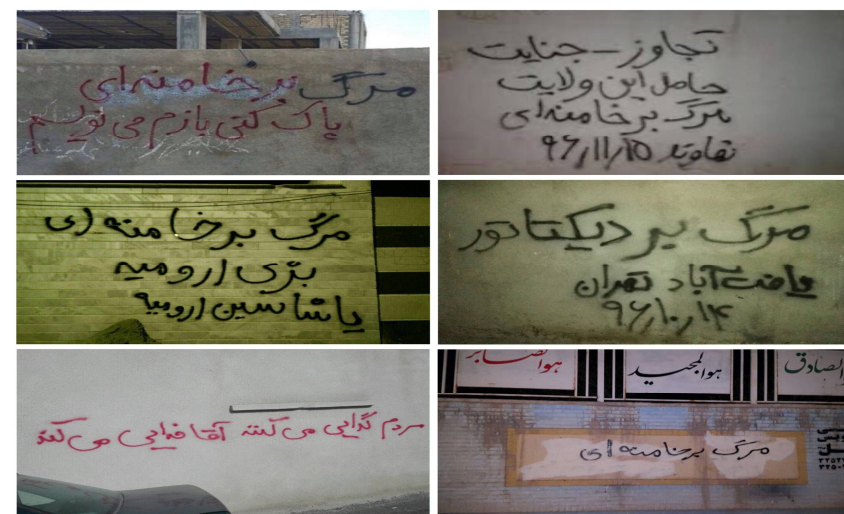 مرگ بر خامنه‌ای
پاک کنی بازم می نویسم
تجاوز - جنایت
حامل این ولایت
مرگ بر خامنه‌ای
نهاوند ۹۶/۱۱/۱۵
مرگ بر خامنه ای
بژی ارومیه
یاشاسین ارومیه
مرگ بر دیکتاتور
یافت آباد تهران
۹۶/۱۰/۱۴
مردم گدایی می کنند آقا خدایی می کند
هوالصابر
هوالمجید
الصادق
مرگ بر خامنه ای